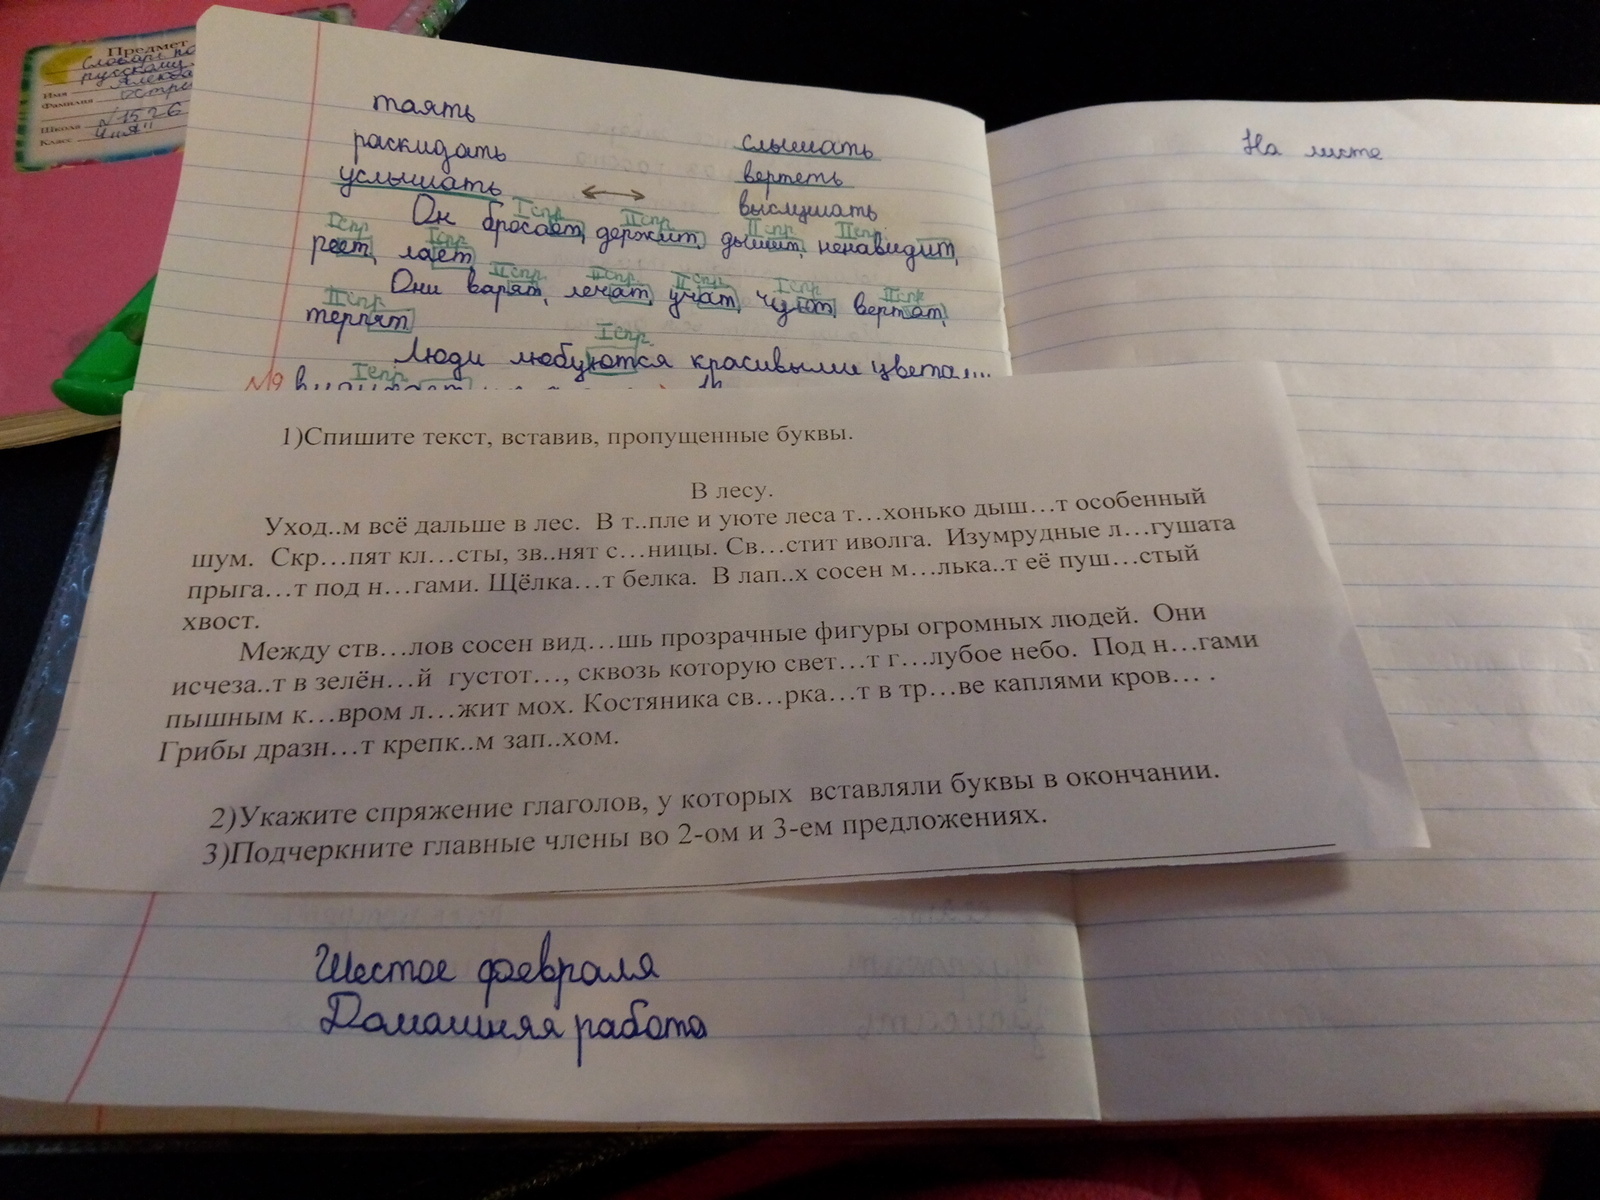 Предмет
Словарь по
русскому
Имя
Фамилия
Школа № 1526
Класс 4 "Я"
таять
раскидать слышать
услышать вертеть
выслушать
На листе
I спр. II спр. II спр. II спр.
Он бросает, держит, дышит, ненавидит,
I спр. I спр.
реет, лает
II спр. II спр. II спр. I спр. II спр.
Они варят, лечат, учат, чуют, вертят,
II спр.
терпят
I спр.
Люди любуются красивыми
I спр.
1)Спишите текст, вставив, пропущенные буквы.
В лесу.
Уход..м всё дальше в лес. В т..пле и уюте леса т…хонько дыш…т особенный
шум. Скр…пят кл…сты, зв..нят с…ницы. Св…стит иволга. Изумрудные л…гушата
прыга…т под н…гами. Щёлка…т белка. В лап..х сосен м…лька..т её пуш…стый
хвост.
Между ств…лов сосен вид…шь прозрачные фигуры огромных людей. Они
исчеза..т в зелён…й густот…, сквозь которую свет…т г…лубое небо. Под н…гами
пышным к…вром л…жит мох. Костяника св…рка…т в тр…ве каплями кров… .
Грибы дразн…т крепк..м зап..хом.
2)Укажите спряжение глаголов, у которых вставляли буквы в окончании.
3)Подчеркните главные члены во 2-ом и 3-ем предложениях.
Шестое февраля
Домашняя работа